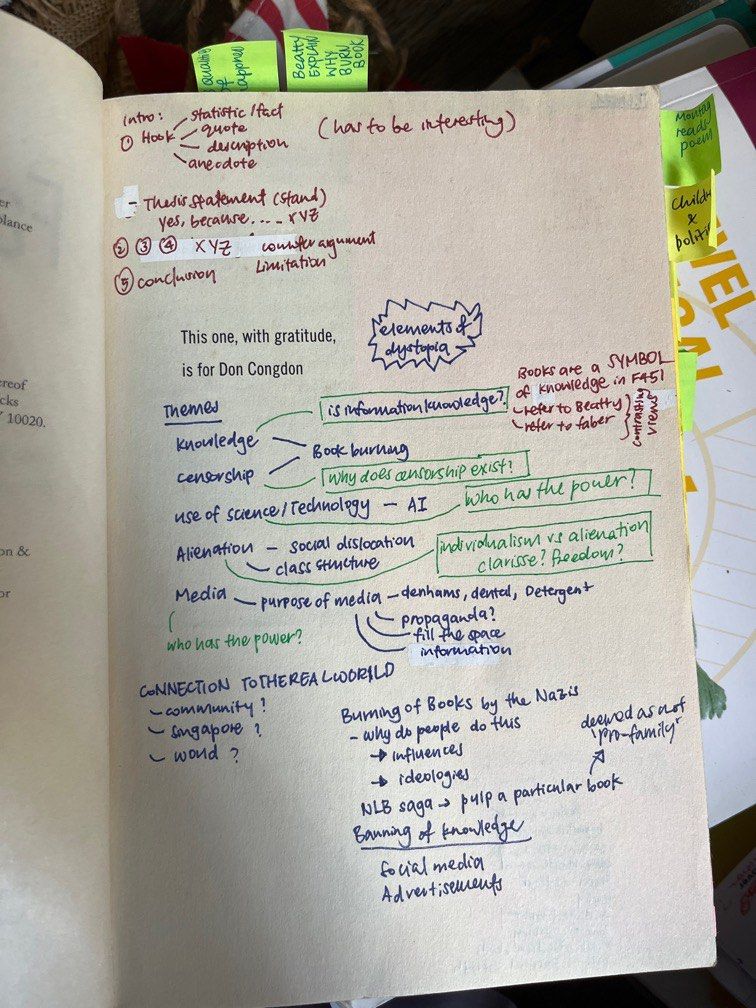 BEATTY
EXPLAIN
WHY
BURN
BOOK
Montag
reads
poem
intro:
① Hook
statistic / fact
quote
description
anecdote
(has to be interesting)
- Thesis statement (stand)
yes, because .... XYZ
② ③ ④ XYZ counter argument
Limitation
⑤ conclusion
This one, with gratitude,
is for Don Congdon
elements of
dystopia
Books are a SYMBOL
of knowledge in F451
refer to Beatty
refer to faber
contrasting
views
Themes
is information knowledge?
Knowledge
censorship
Book burning
why does censorship exist?
use of science/Technology - AI
who has the power?
Alienation - social dislocation
class structure
individualism vs alienation
clarisse? freedom?
Media - purpose of media - denhams, dental, Detergent
propaganda?
fill the space
information
who has the power?
CONNECTION TO THE REAL WORLD
- community?
- singapore?
- world?
Burning of Books by the Nazis
- why do people do this
→ influences
→ ideologies
deemed as not
"pro-family"
NLB saga → pulp a particular book
Banning of knowledge
Social media
Advertisements
10020.